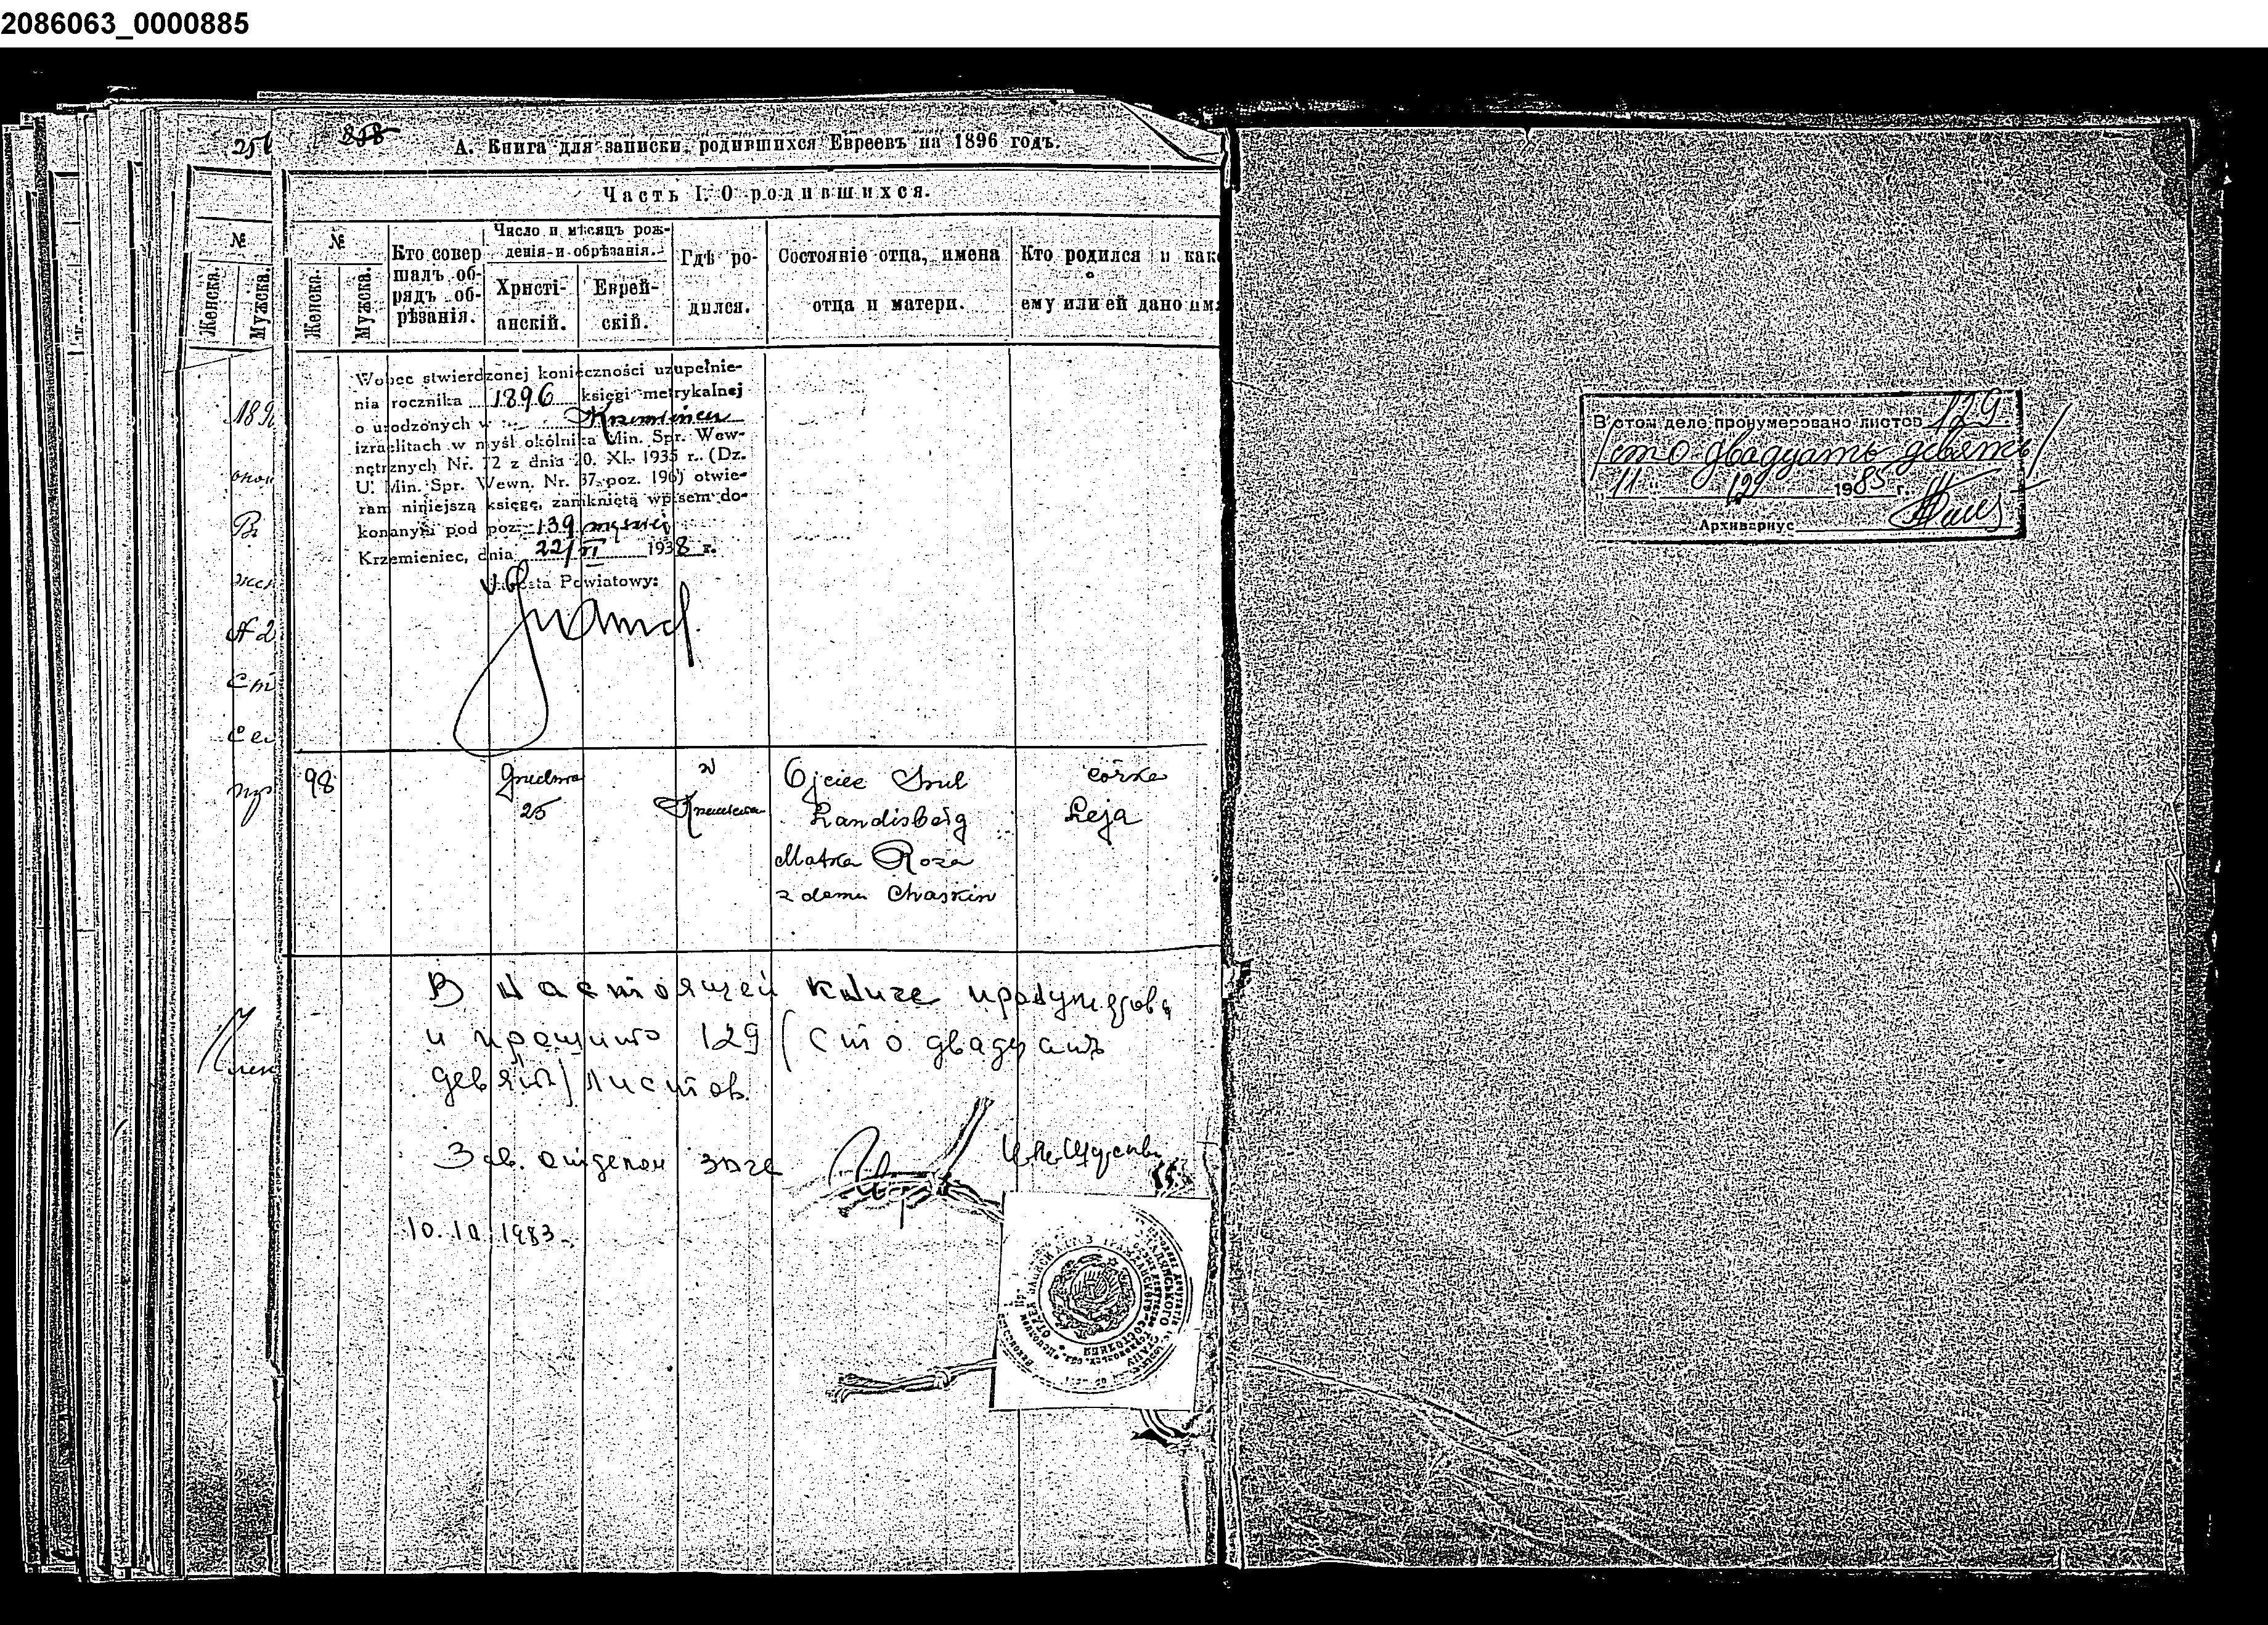 2086063_0000885
258
А. Книга для записки родившихся Евреевъ на 1896 годъ.
Часть I. О родившихся.
№
Женска.
Мужска.
№
Женска.
Мужска.
Кто совер
шалъ об-
рядъ об-
рѣзанія.
Число и мѣсяцъ рож-
денія и обрѣзанія.
Христі-
анскій.
Еврей-
скій.
Гдѣ ро-
дился.
Состояніе отца, имена
отца и матери.
Кто родился и как
ему или ей дано им
Wobec stwierdzonej konieczności uzupełnie-
nia rocznika 1896 księgi metrykalnej
o urodzonych w Krzemieńcu
izraelitach w myśl okólnika Min. Spr. Wew-
nętrznych Nr. 72 z dnia 20. XI. 1935 r. (Dz.
U. Min. Spr. Wewn. Nr. 37. poz. 196) otwie-
ram niniejszą księgę, zamkniętą wpisem do-
konanym pod poz. 139
Krzemieniec, dnia 22/VI 1938 r.
Starosta Powiatowy:
98
Grudnia
25
w
Krzemieńcu
Ojciec Srul
Landisberg
Matka Roza
z domu Chaskin
córka
Leja
В настоящей книге пронумеров
и прошито 129 (сто двадцать
девять) листов.
Зав. отделом загс
10.10.1983
В этом деле пронумеровано листов 129.
/сто двадцать девять/
"11" 12 1985 г.
Архивариус